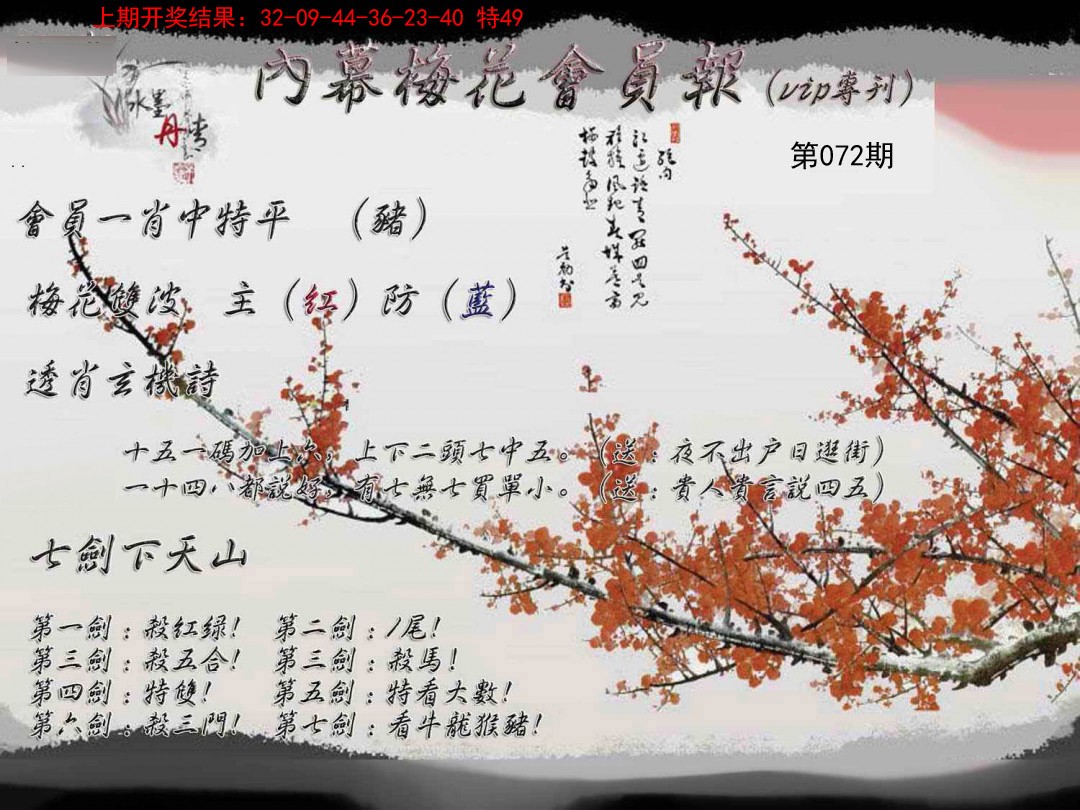 上期开奖结果：32-09-44-36-23-40 特49
內幕梅花會員報（vip專刊）
水墨
丹青
第072期
會員一肖中特平 （豬）
梅花雙波 主（红）防（藍）
透肖玄機詩
十五一碼加上六，上下二頭七中五。（送：夜不出户日逛街）
一十四八都説好，有七無七買單小。（送：貴人貴言説四五）
七劍下天山
第一劍：殺紅绿！ 第二劍：1尾！
第三劍：殺五合！ 第三劍：殺馬！
第四劍：特雙！ 第五劍：特看大數！
第六劍：殺三門！ 第七劍：看牛龍猴豬！